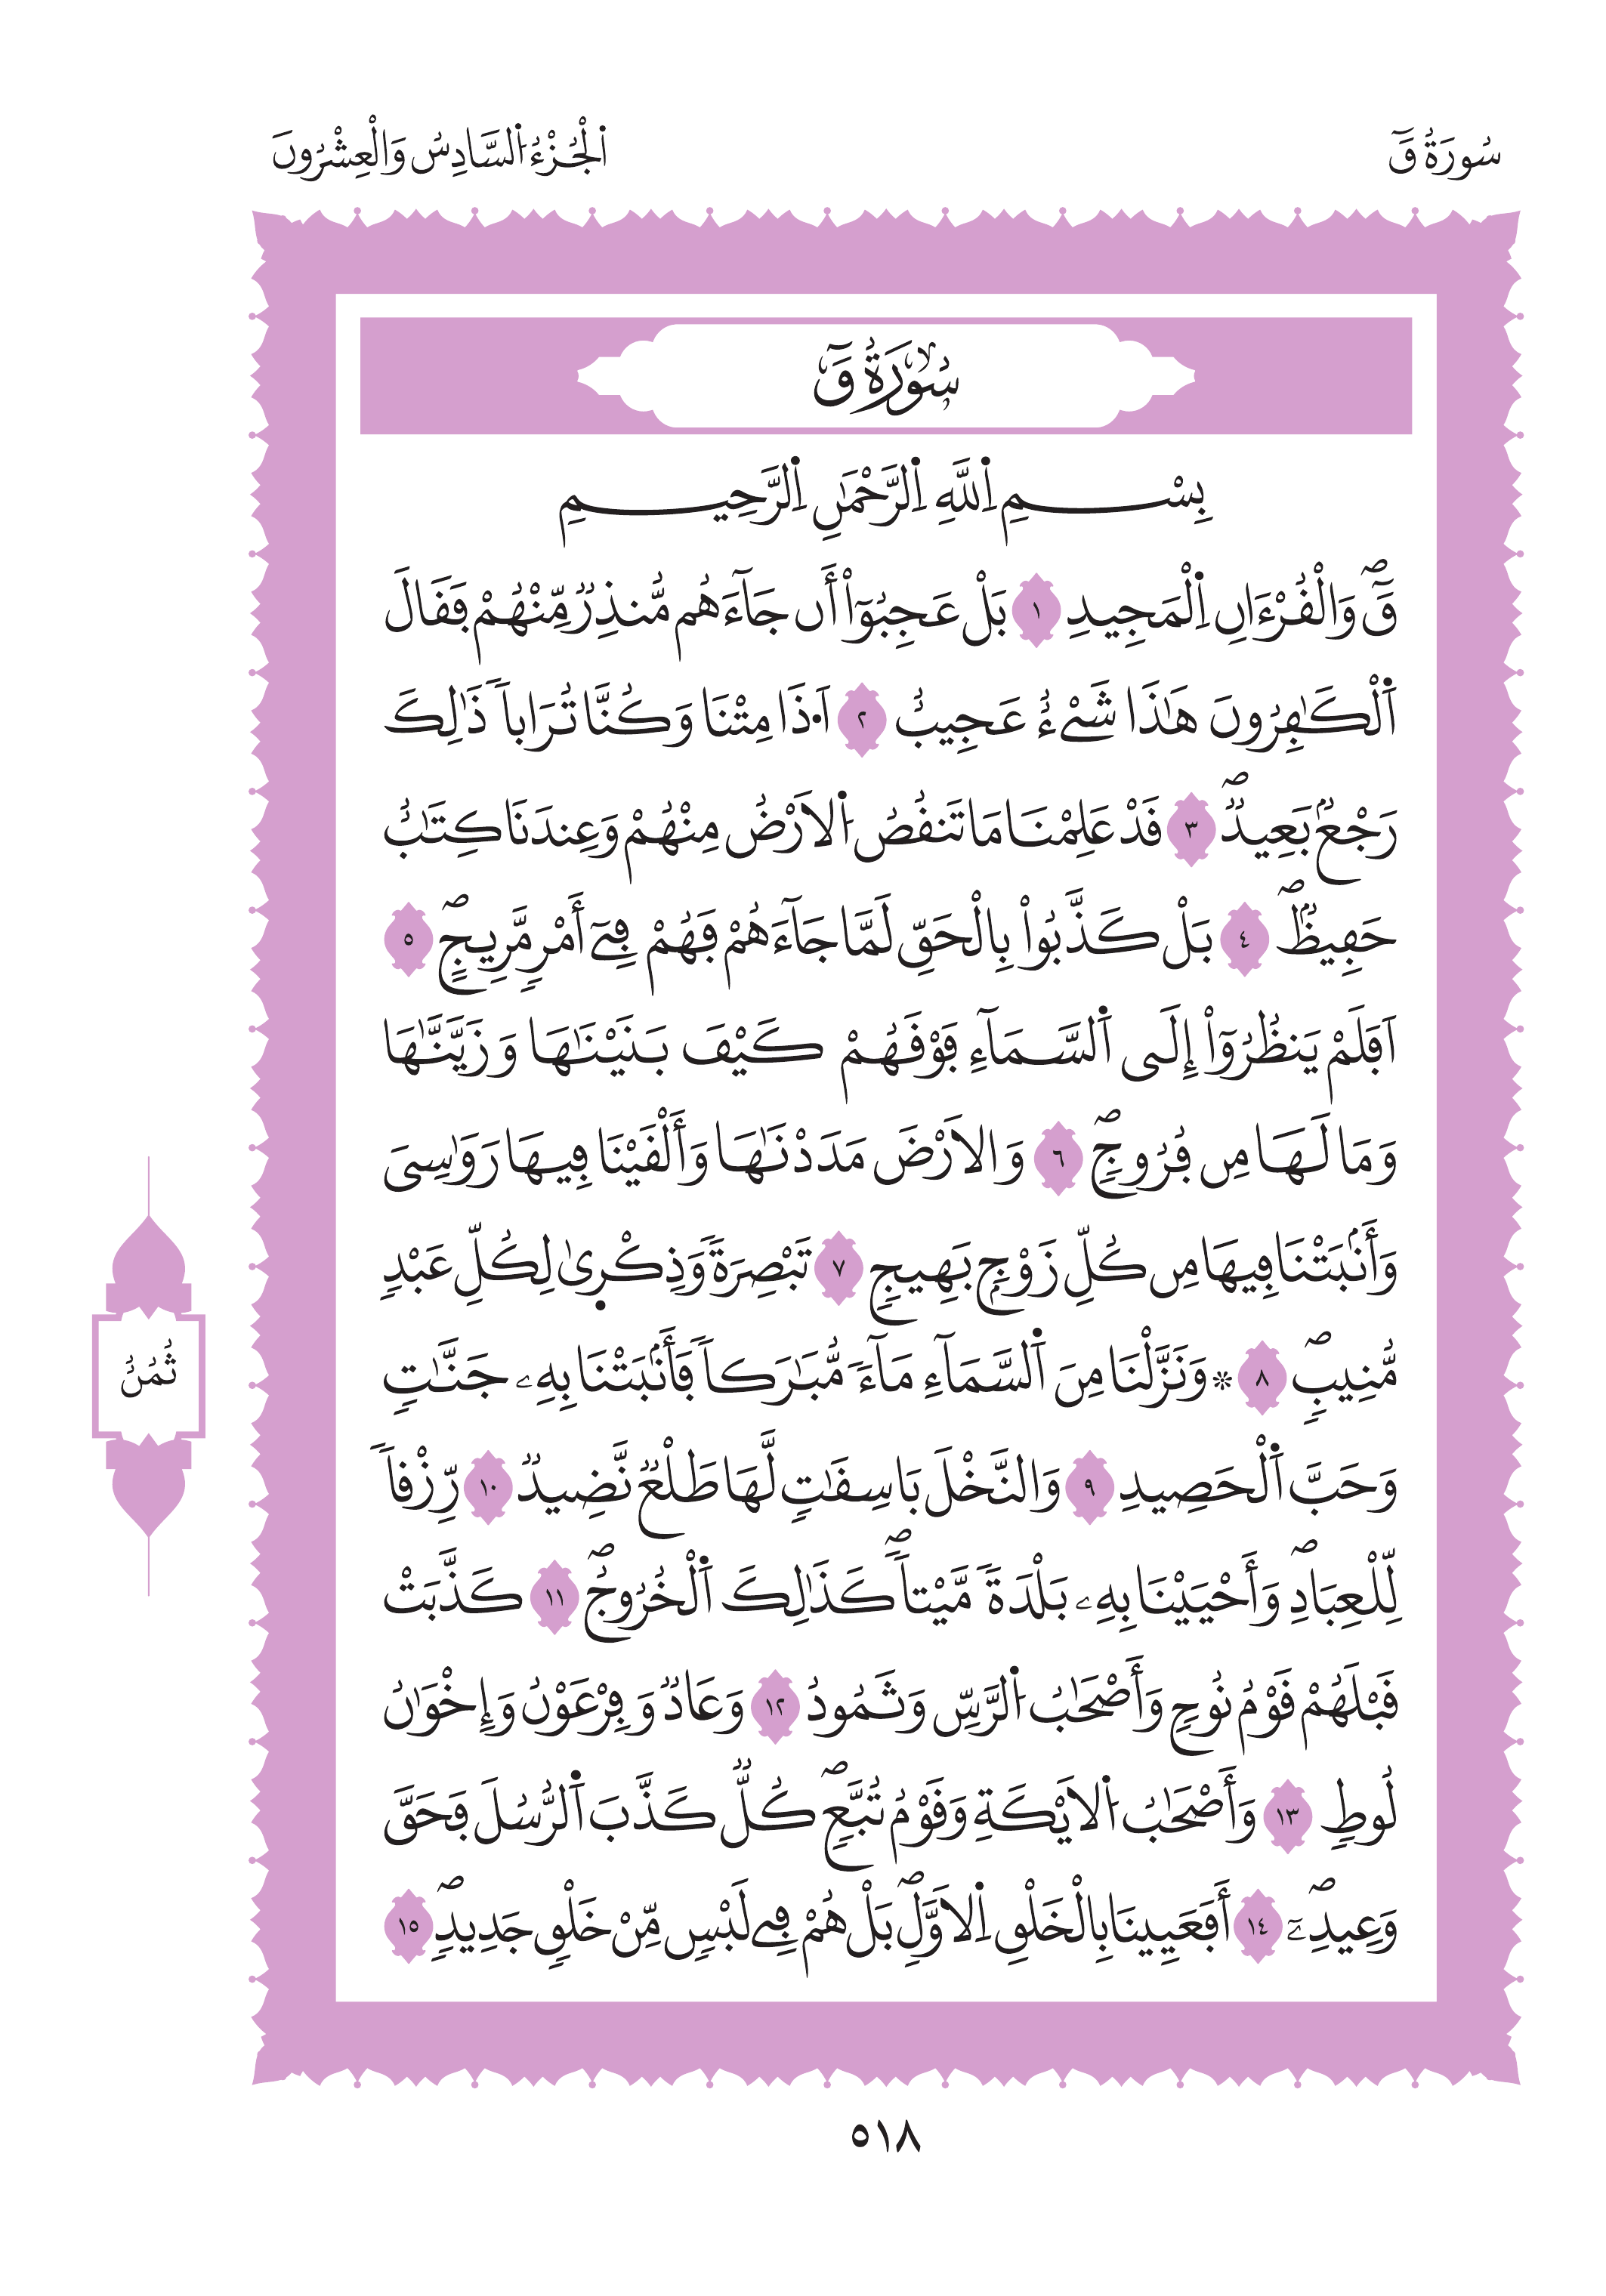 سُورَةُ قَٓ
اَ۬لْجُزْءُ اُ۬لسَّادِسُ وَالْعِشْرُونَ
سُورَةُ قَٓ
بِسْمِ اِ۬للَّهِ اِ۬لرَّحْمَٰنِ اِ۬لرَّحِيمِ
قَٓۖ وَالْقُرْءَانِ اِ۬لْمَجِيدِ ١ بَلْ عَجِبُوٓاْ أَن جَآءَهُم مُّنذِرٞ مِّنْهُمْ فَقَالَ
اَ۬لْكَٰفِرُونَ هَٰذَا شَےْءٌ عَجِيبٌ ٢ اَ.ذَا مِتْنَا وَكُنَّا تُرَاباٗ ذَٰلِكَ
رَجْعُۢ بَعِيدٞۖ ٣ قَدْ عَلِمْنَا مَا تَنقُصُ اُ۬لَارْضُ مِنْهُمْ وَعِندَنَا كِتَٰبٌ
حَفِيظُۢۖ ٤ بَلْ كَذَّبُواْ بِالْحَقِّ لَمَّا جَآءَهُمْ فَهُمْ فِےٓ أَمْرٖ مَّرِيجٍۖ ٥
اَفَلَمْ يَنظُرُوٓاْ إِلَى اَ۬لسَّمَآءِ فَوْقَهُمْ كَيْفَ بَنَيْنَٰهَا وَزَيَّنَّٰهَا
وَمَا لَهَا مِن فُرُوجٖۖ ٦ وَالَارْضَ مَدَدْنَٰهَا وَأَلْقَيْنَا فِيهَا رَوَٰسِىَ
وَأَنۢبَتْنَا فِيهَا مِن كُلِّ زَوْجِۢ بَهِيجٖ ٧ تَبْصِرَةٗ وَذِكْر۪ىٰ لِكُلِّ عَبْدٖ
مُّنِيبٖۖ ٨ ۞ وَنَزَّلْنَا مِنَ اَ۬لسَّمَآءِ مَآءٗ مُّبَٰرَكاٗ فَأَنۢبَتْنَا بِهِۦ جَنَّٰتٖ
وَحَبَّ اَ۬لْحَصِيدِ ٩ وَالنَّخْلَ بَاسِقَٰتٖ لَّهَا طَلْعٞ نَّضِيدٞ ١٠ رِّزْقاٗ
لِّلْعِبَادِۖ وَأَحْيَيْنَا بِهِۦ بَلْدَةٗ مَّيْتاٗۖ كَذَٰلِكَ اَ۬لْخُرُوجُۖ ١١ كَذَّبَتْ
قَبْلَهُمْ قَوْمُ نُوحٖ وَأَصْحَٰبُ اُ۬لرَّسِّ وَثَمُودُ ١٢ وَعَادٞ وَفِرْعَوْنُ وَإِخْوَٰنُ
لُوطٖ ١٣ وَأَصْحَٰبُ اُ۬لَايْكَةِ وَقَوْمُ تُبَّعٖۖ كُلّٞ كَذَّبَ اَ۬لرُّسُلَ فَحَقَّ
وَعِيدِۦٓۖ ١٤ أَفَعَيِينَا بِالْخَلْقِ اِ۬لَاوَّلِۖ بَلْ هُمْ فِے لَبْسٖ مِّنْ خَلْقٖ جَدِيدٖۖ ١٥
ثُمُنُ
٥١٨